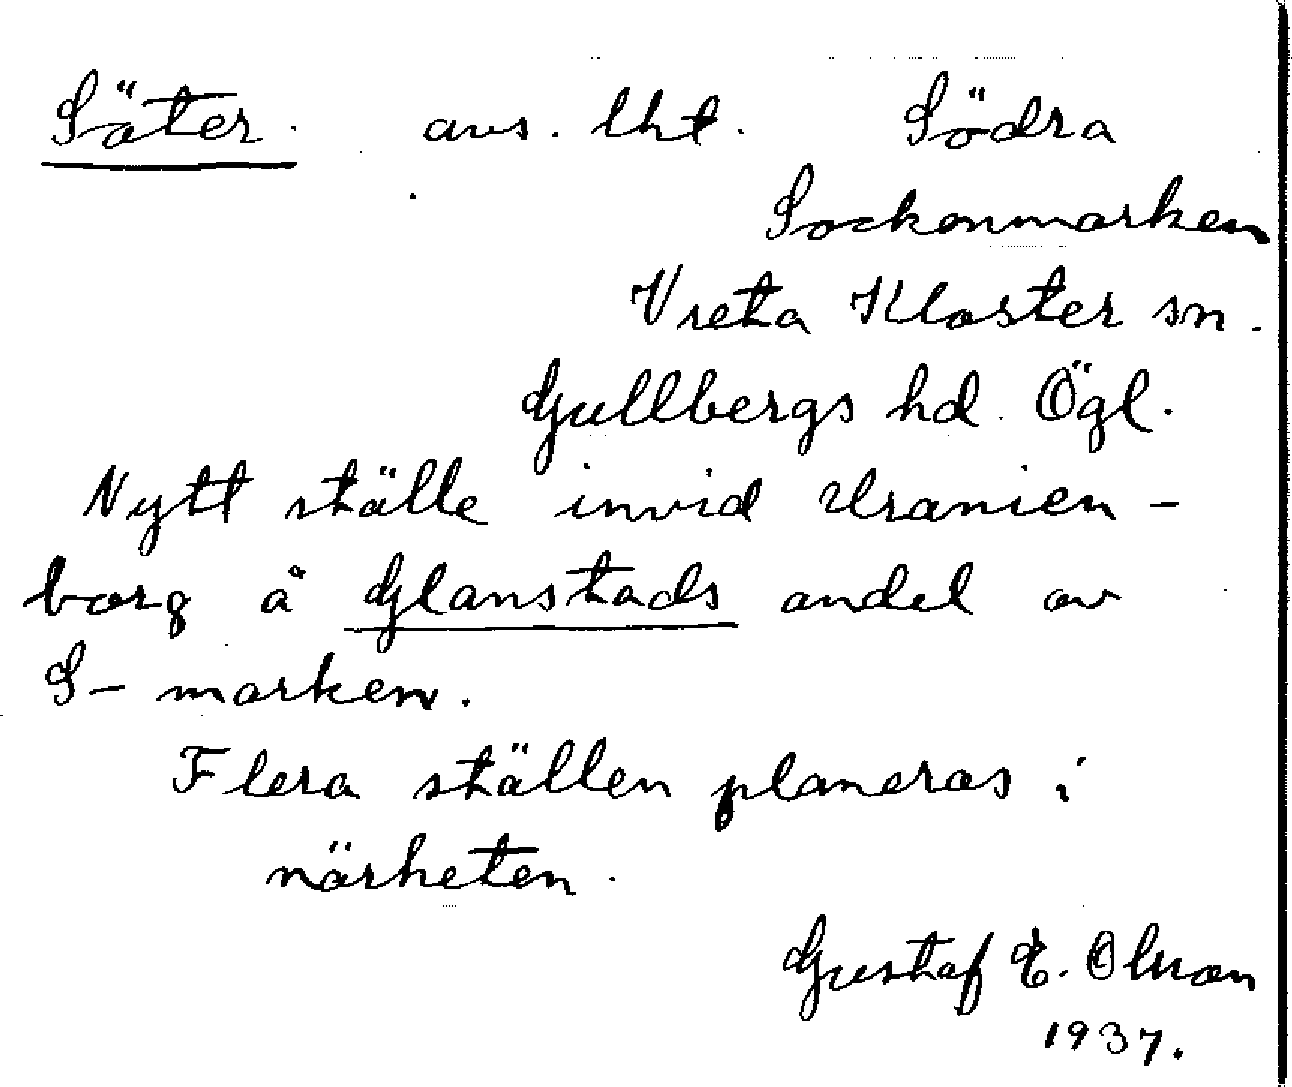 Säter. avs. lht. Södra
Sockenmarken
Vreta Kloster sn.
Gullbergs hd. Ögl.
Nytt ställe invid Uranien-
borg å Glanstads andel av
S-marken.
Flera ställen planeras i
närheten.
Gustaf E. Olsson
1937.